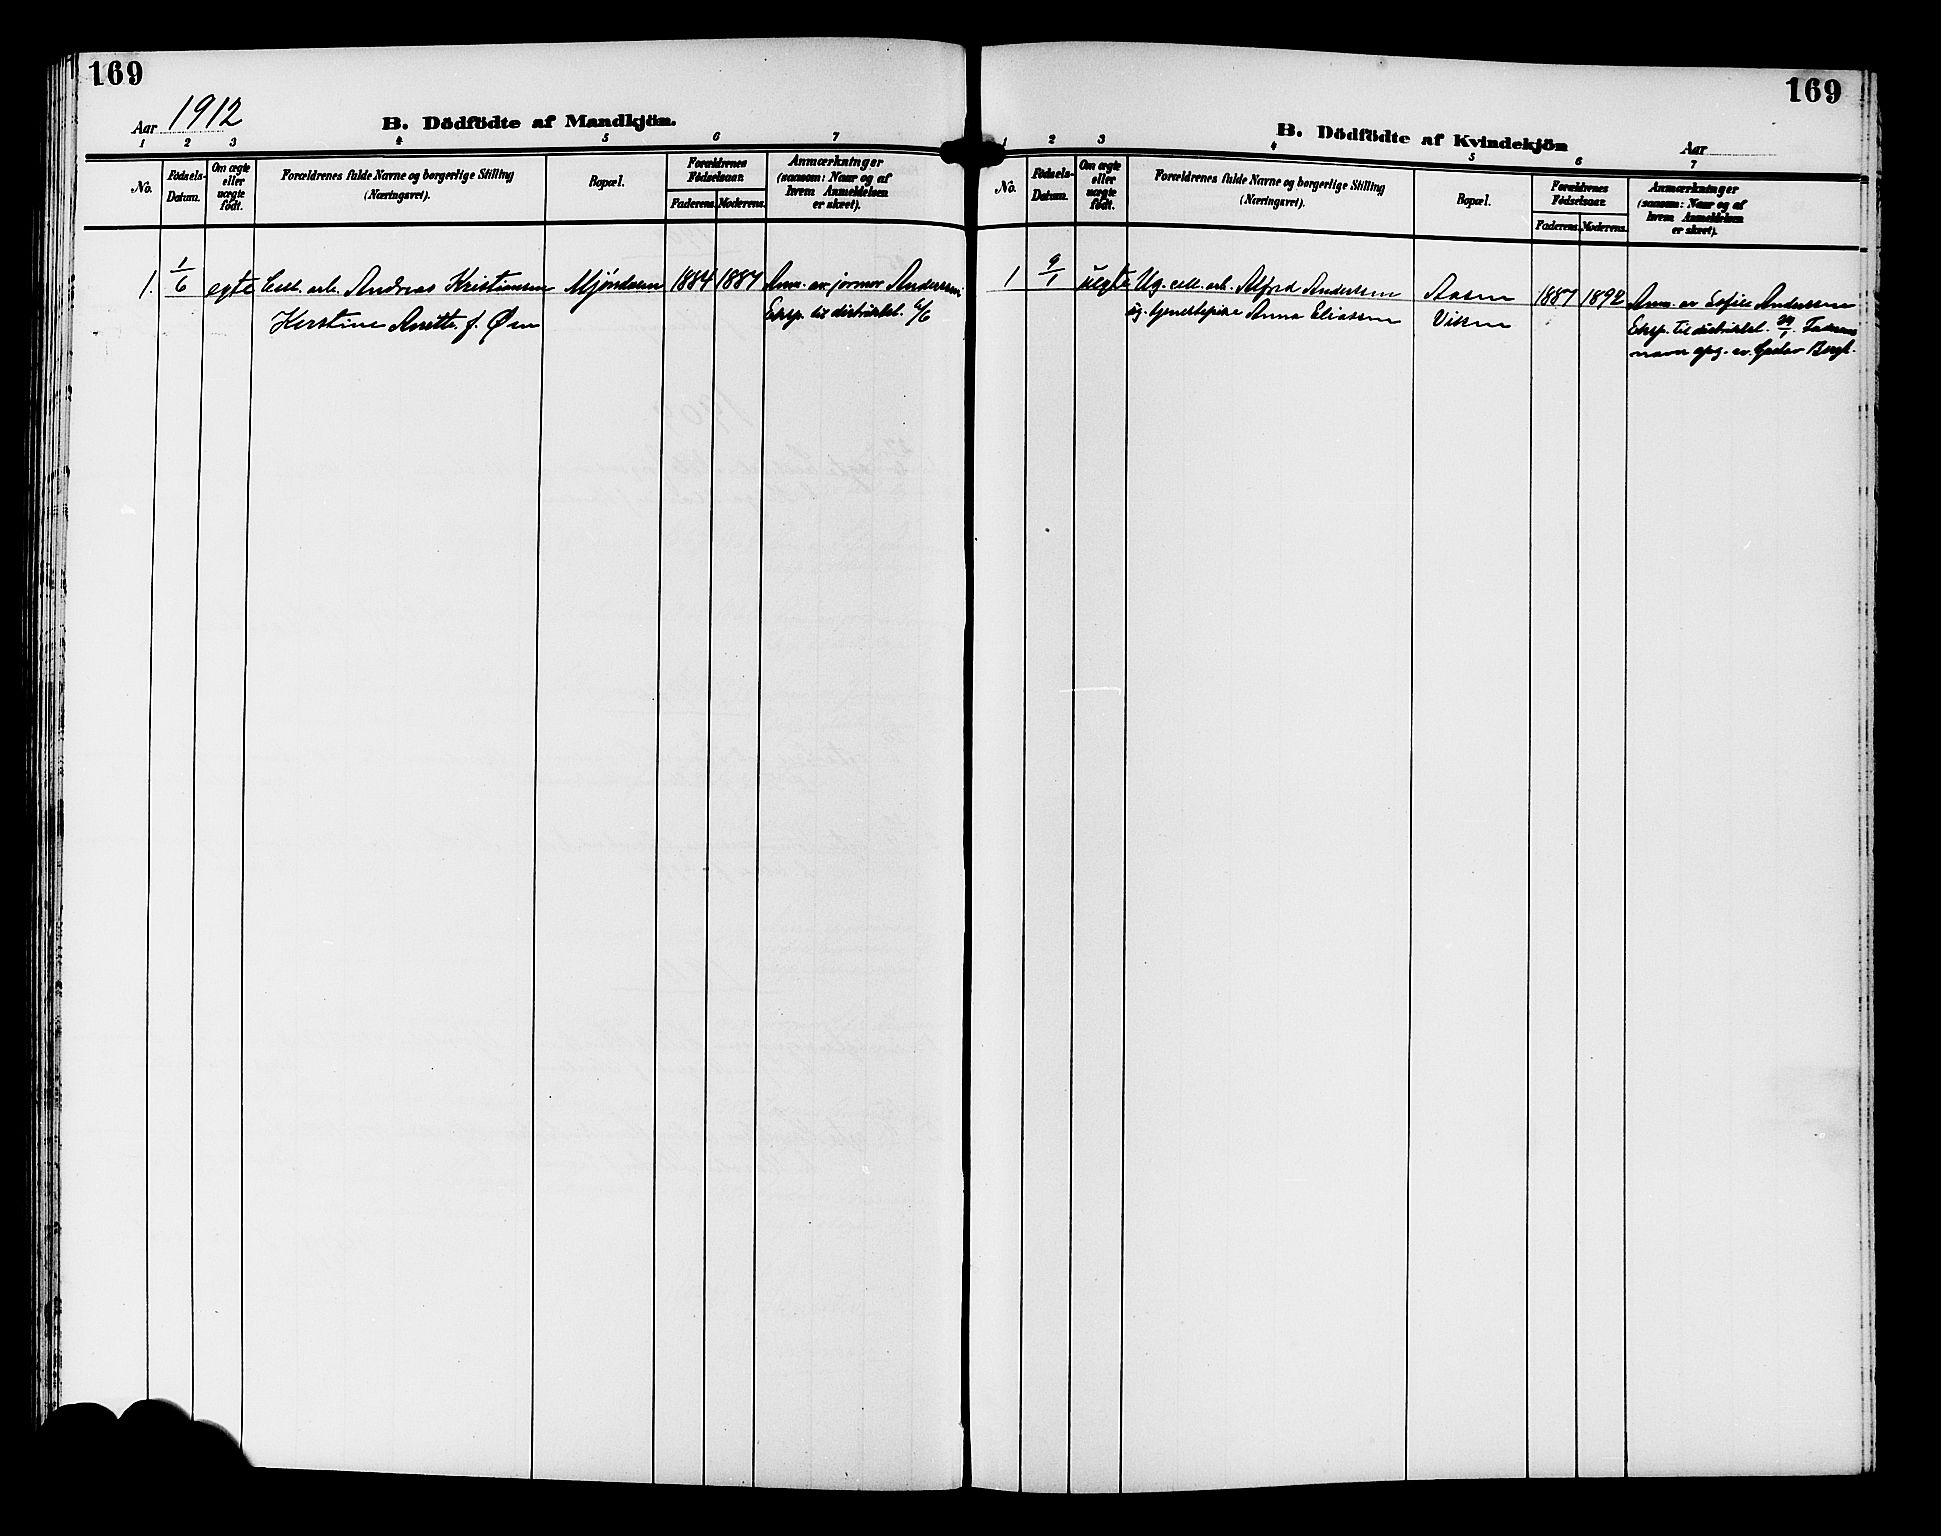 169
Aar 1912
B. Dödfödte af Mandkjön.
1 2 3 4 5 6 7
No.
Födsels-
Datum.
Om ægte
eller
uægte
födt.
Forældrenes fulde Navne og borgerlige Stilling
(Næringsvei).
Bopæl.
Forældrenes
Födselsaar.
Faderens. Moderens.
Anmærkninger
(saasom: Naar og af
hvem Anmeldelsen
er skeet).
1. 1/6 egte Cell. arb. Andreas Kristiansen Mjöndalen 1884 1887 Anm. av jormor Andersen
Kirstine Anette f. Øen Eksp. til distriktet 6/6
169
B. Dödfödte af Kvindekjön
Aar
1 2 3 4 5 6 7
No.
Födsels-
Datum.
Om ægte
eller
uægte
födt.
Forældrenes fulde Navne og borgerlige Stilling
(Næringsvei).
Bopæl.
Forældrenes
Födselsaar.
Faderens. Moderens.
Anmærkninger
(saasom: Naar og af
hvem Anmeldelsen
er skeet).
1 9/1 uegte Ug. cell. arb. Alfred Andersen Aasen 1887 1892 Anm. av Sofie Andersen
ug. tjenestepike Anna Eliassen Viken Eksp. til distriktet Faderens
navn opg. av Gustav Bergh.